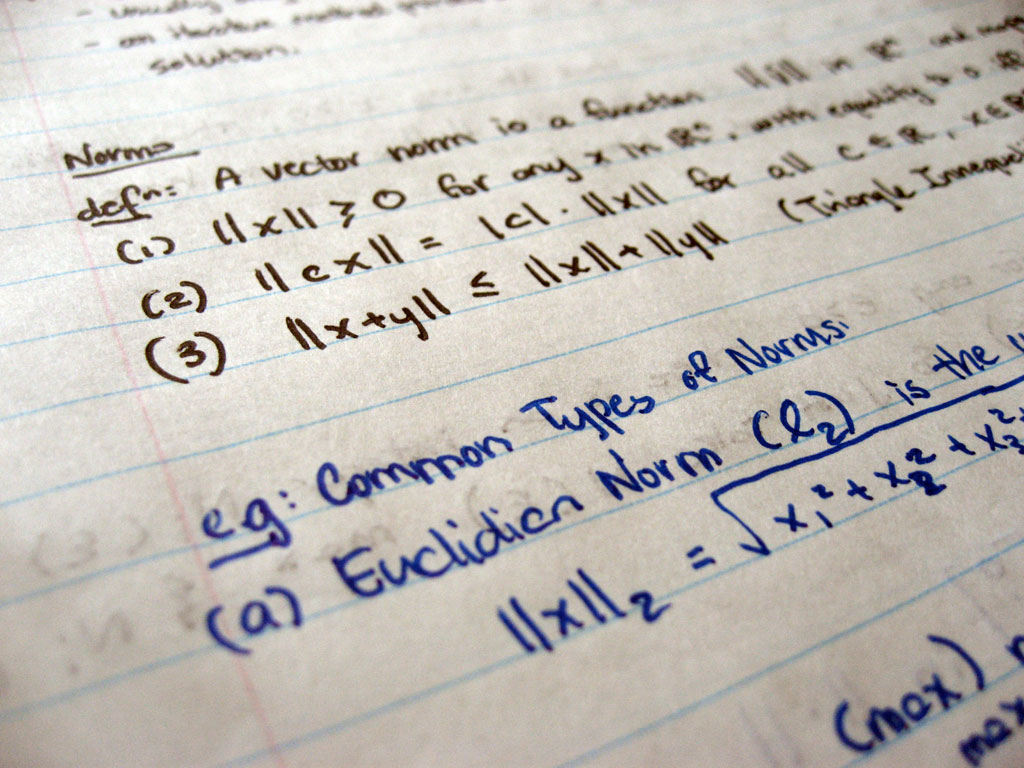 - usually
- an iterative method
solution.
Norms
defn: A vector norm is a function || || in ℝⁿ and
(1) ||x|| ≥ 0 for any x in ℝⁿ, with equality
(2) ||cx|| = |c| · ||x|| for all c ∈ ℝ, x ∈ ℝ
(3) ||x+y|| ≤ ||x|| + ||y|| (Triangle
eg: Common Types of Norms:
(a) Euclidian Norm (ℓ₂) is the
||x||₂ = √x₁² + x₂² + x₃²
(max)
max